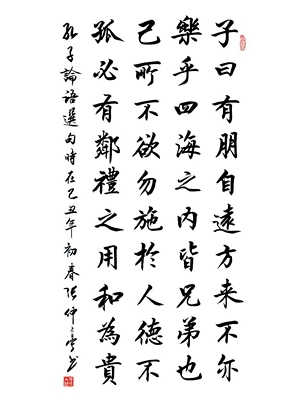 子曰有朋自遠方來不亦
樂乎四海之內皆兄弟也
己所不欲勿施於人德不
孤必有鄰禮之用和為貴
孔子論語選句時在己丑年初春張仲亭書